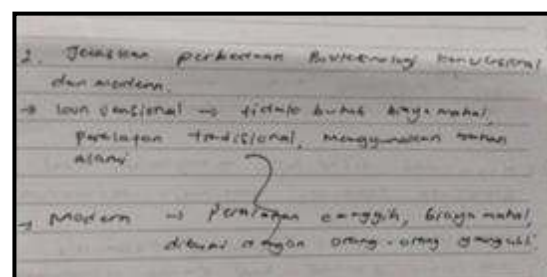 2. Jelaskan perbedaan Bioteknologi konvensional
dan modern.
→ konvensional → tidak butuh biaya mahal,
Peralatan tradisional, menggunakan bahan
alami
→ Modern → Peralatan canggih, biaya mahal,
dengan orang-orang yang ahli.